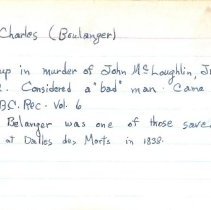 Charles (Boulanger)
up in murder of John McLoughlin, Jr
Considered a "bad" man. Came
B.C. Rec. Vol. 6
Belanger was one of those saved
at Dalles des Morts in 1838.